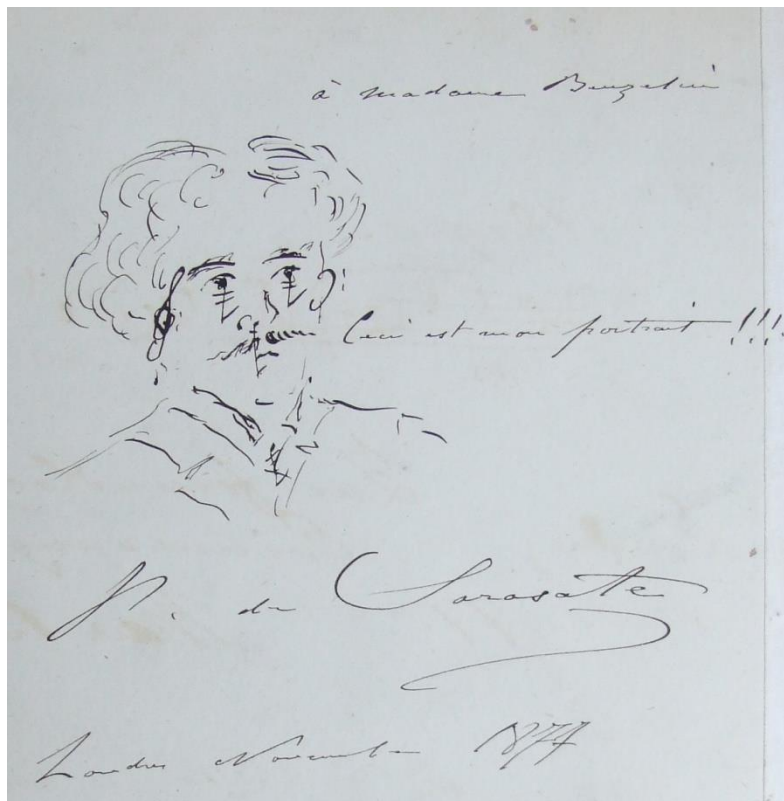 à madame Buzelin
Ceci est mon portrait !!!
P. de Sarasate
Londres Novembre 1877